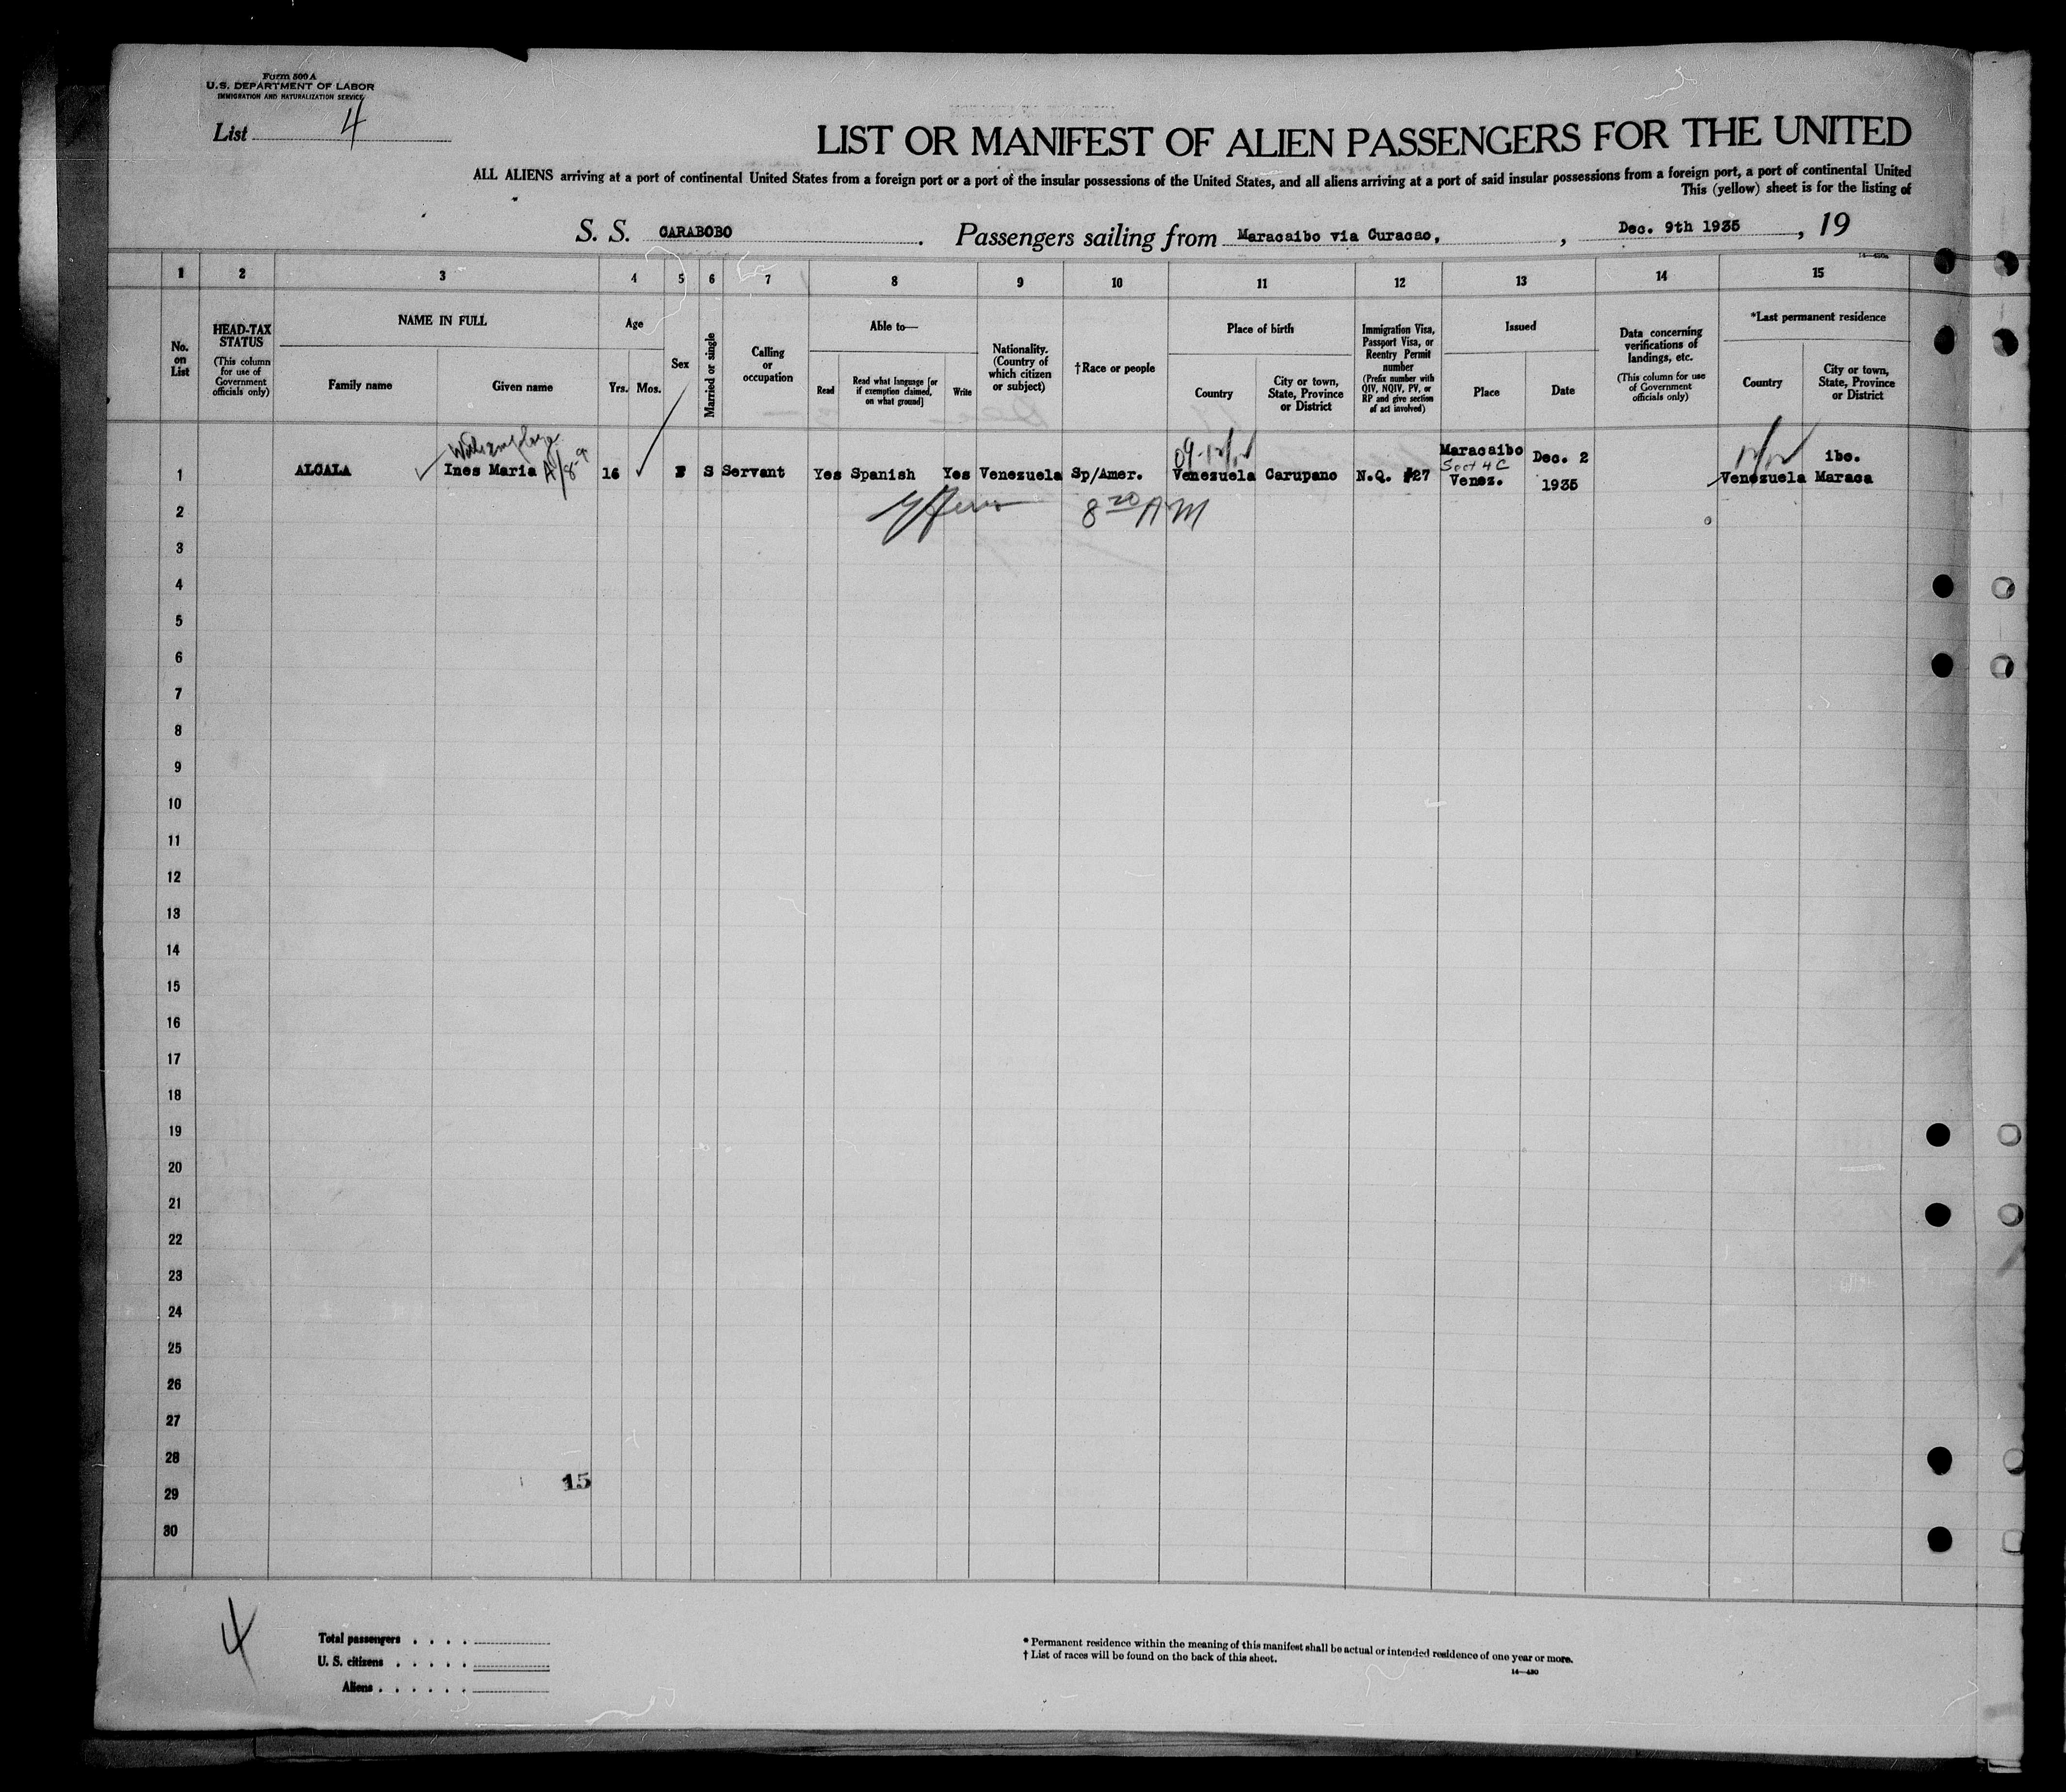 Form 500 A
U.S. DEPARTMENT OF LABOR
IMMIGRATION AND NATURALIZATION SERVICE
List 4
LIST OR MANIFEST OF ALIEN PASSENGERS FOR THE UNITED
ALL ALIENS arriving at a port of continental United States from a foreign port or a port of the insular possessions of the United States, and all aliens arriving at a port of said insular possessions from a foreign port, a port of continental United
This (yellow) sheet is for the listing of
S. S. CARABOBO . Passengers sailing from Maracaibo via Curacao, , Dec. 9th 1935 , 19
1 2 3 4 5 6 7 8 9 10 11 12 13 14 15
No. on List
HEAD-TAX STATUS
(This column for use of Government officials only)
NAME IN FULL
Family name
Given name
Age
Yrs. Mos.
Sex
Married or single
Calling or occupation
Able to—
Read
Read what language [or if exemption claimed, on what ground]
Write
Nationality. (Country of which citizen or subject)
†Race or people
Place of birth
Country
City or town, State, Province or District
Immigration Visa, Passport Visa, or Reentry Permit number
(Prefix number with QIV, NQIV, PV, or RP and give section of act involved)
Issued
Place
Date
Data concerning verifications of landings, etc.
(This column for use of Government officials only)
*Last permanent residence
Country
City or town, State, Province or District
1 ALCALA Ines Maria 16 F S Servant Yes Spanish Yes Venezuela Sp/Amer. Venezuela Carupano N.Q. #27 Maracaibo Sect 4 C Venez. Dec. 2 1935 Venezuela Maraca ibo.
8 20 AM
2
3
4
5
6
7
8
9
10
11
12
13
14
15
16
17
18
19
20
21
22
23
24
25
26
27
28
15
29
30
4
Total passengers . . . .
U. S. citizens . . . . .
Aliens . . . . . .
* Permanent residence within the meaning of this manifest shall be actual or intended residence of one year or more.
† List of races will be found on the back of this sheet.
14—430